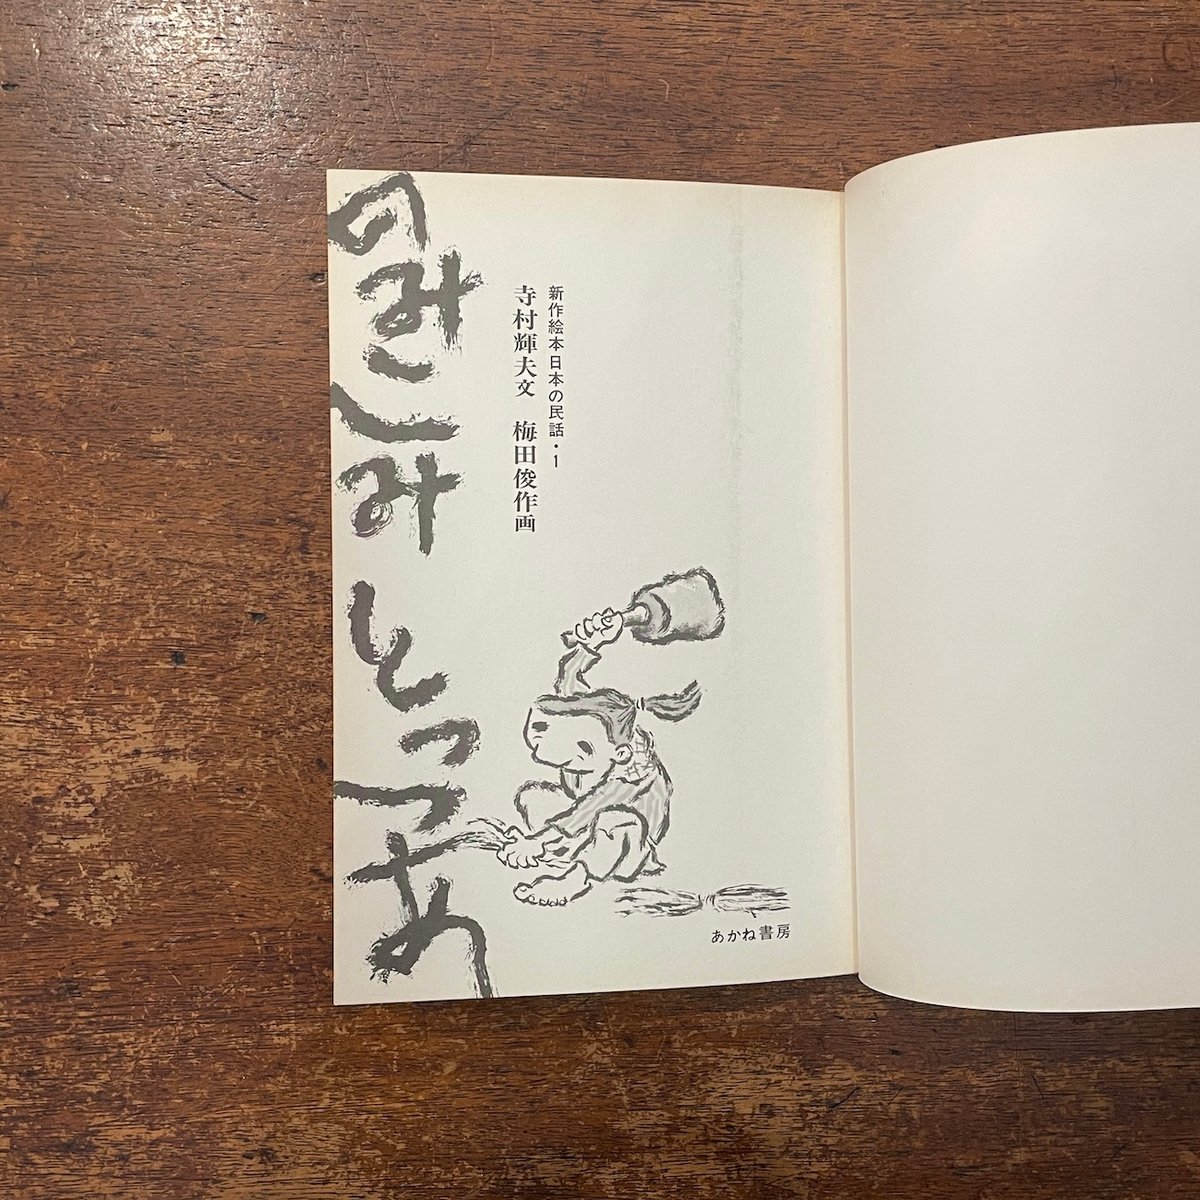 新作絵本日本の民話・1
寺村輝夫文 梅田俊作画
のみこみとっつあ
あかね書房